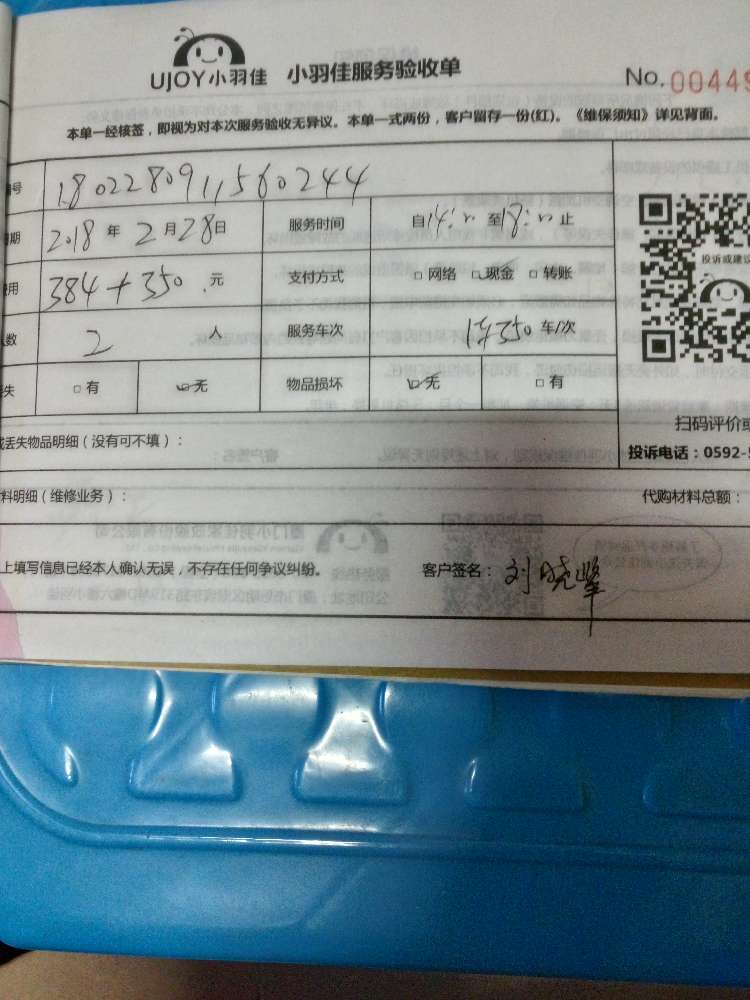 UJOY小羽佳 小羽佳服务验收单 No. 00449
本单一经核签，即视为对本次服务验收无异议。本单一式两份，客户留存一份(红)。《维保须知》详见背面。
号 1802280911560244
期 2018 年 2 月 28 日 服务时间 自 14:00 至 18:00 止
用 384+350 元 支付方式 □ 网络 ☑ 现金 □ 转账
人数 2 人 服务车次 1车350 车/次
失 □ 有 ☑ 无 物品损坏 ☑ 无 □ 有
投诉或建议
扫码评价或
或丢失物品明细（没有可不填）： 投诉电话：0592-5
料明细（维修业务）： 代购材料总额：
上填写信息已经本人确认无误，不存在任何争议纠纷。 客户签名：刘晓峰